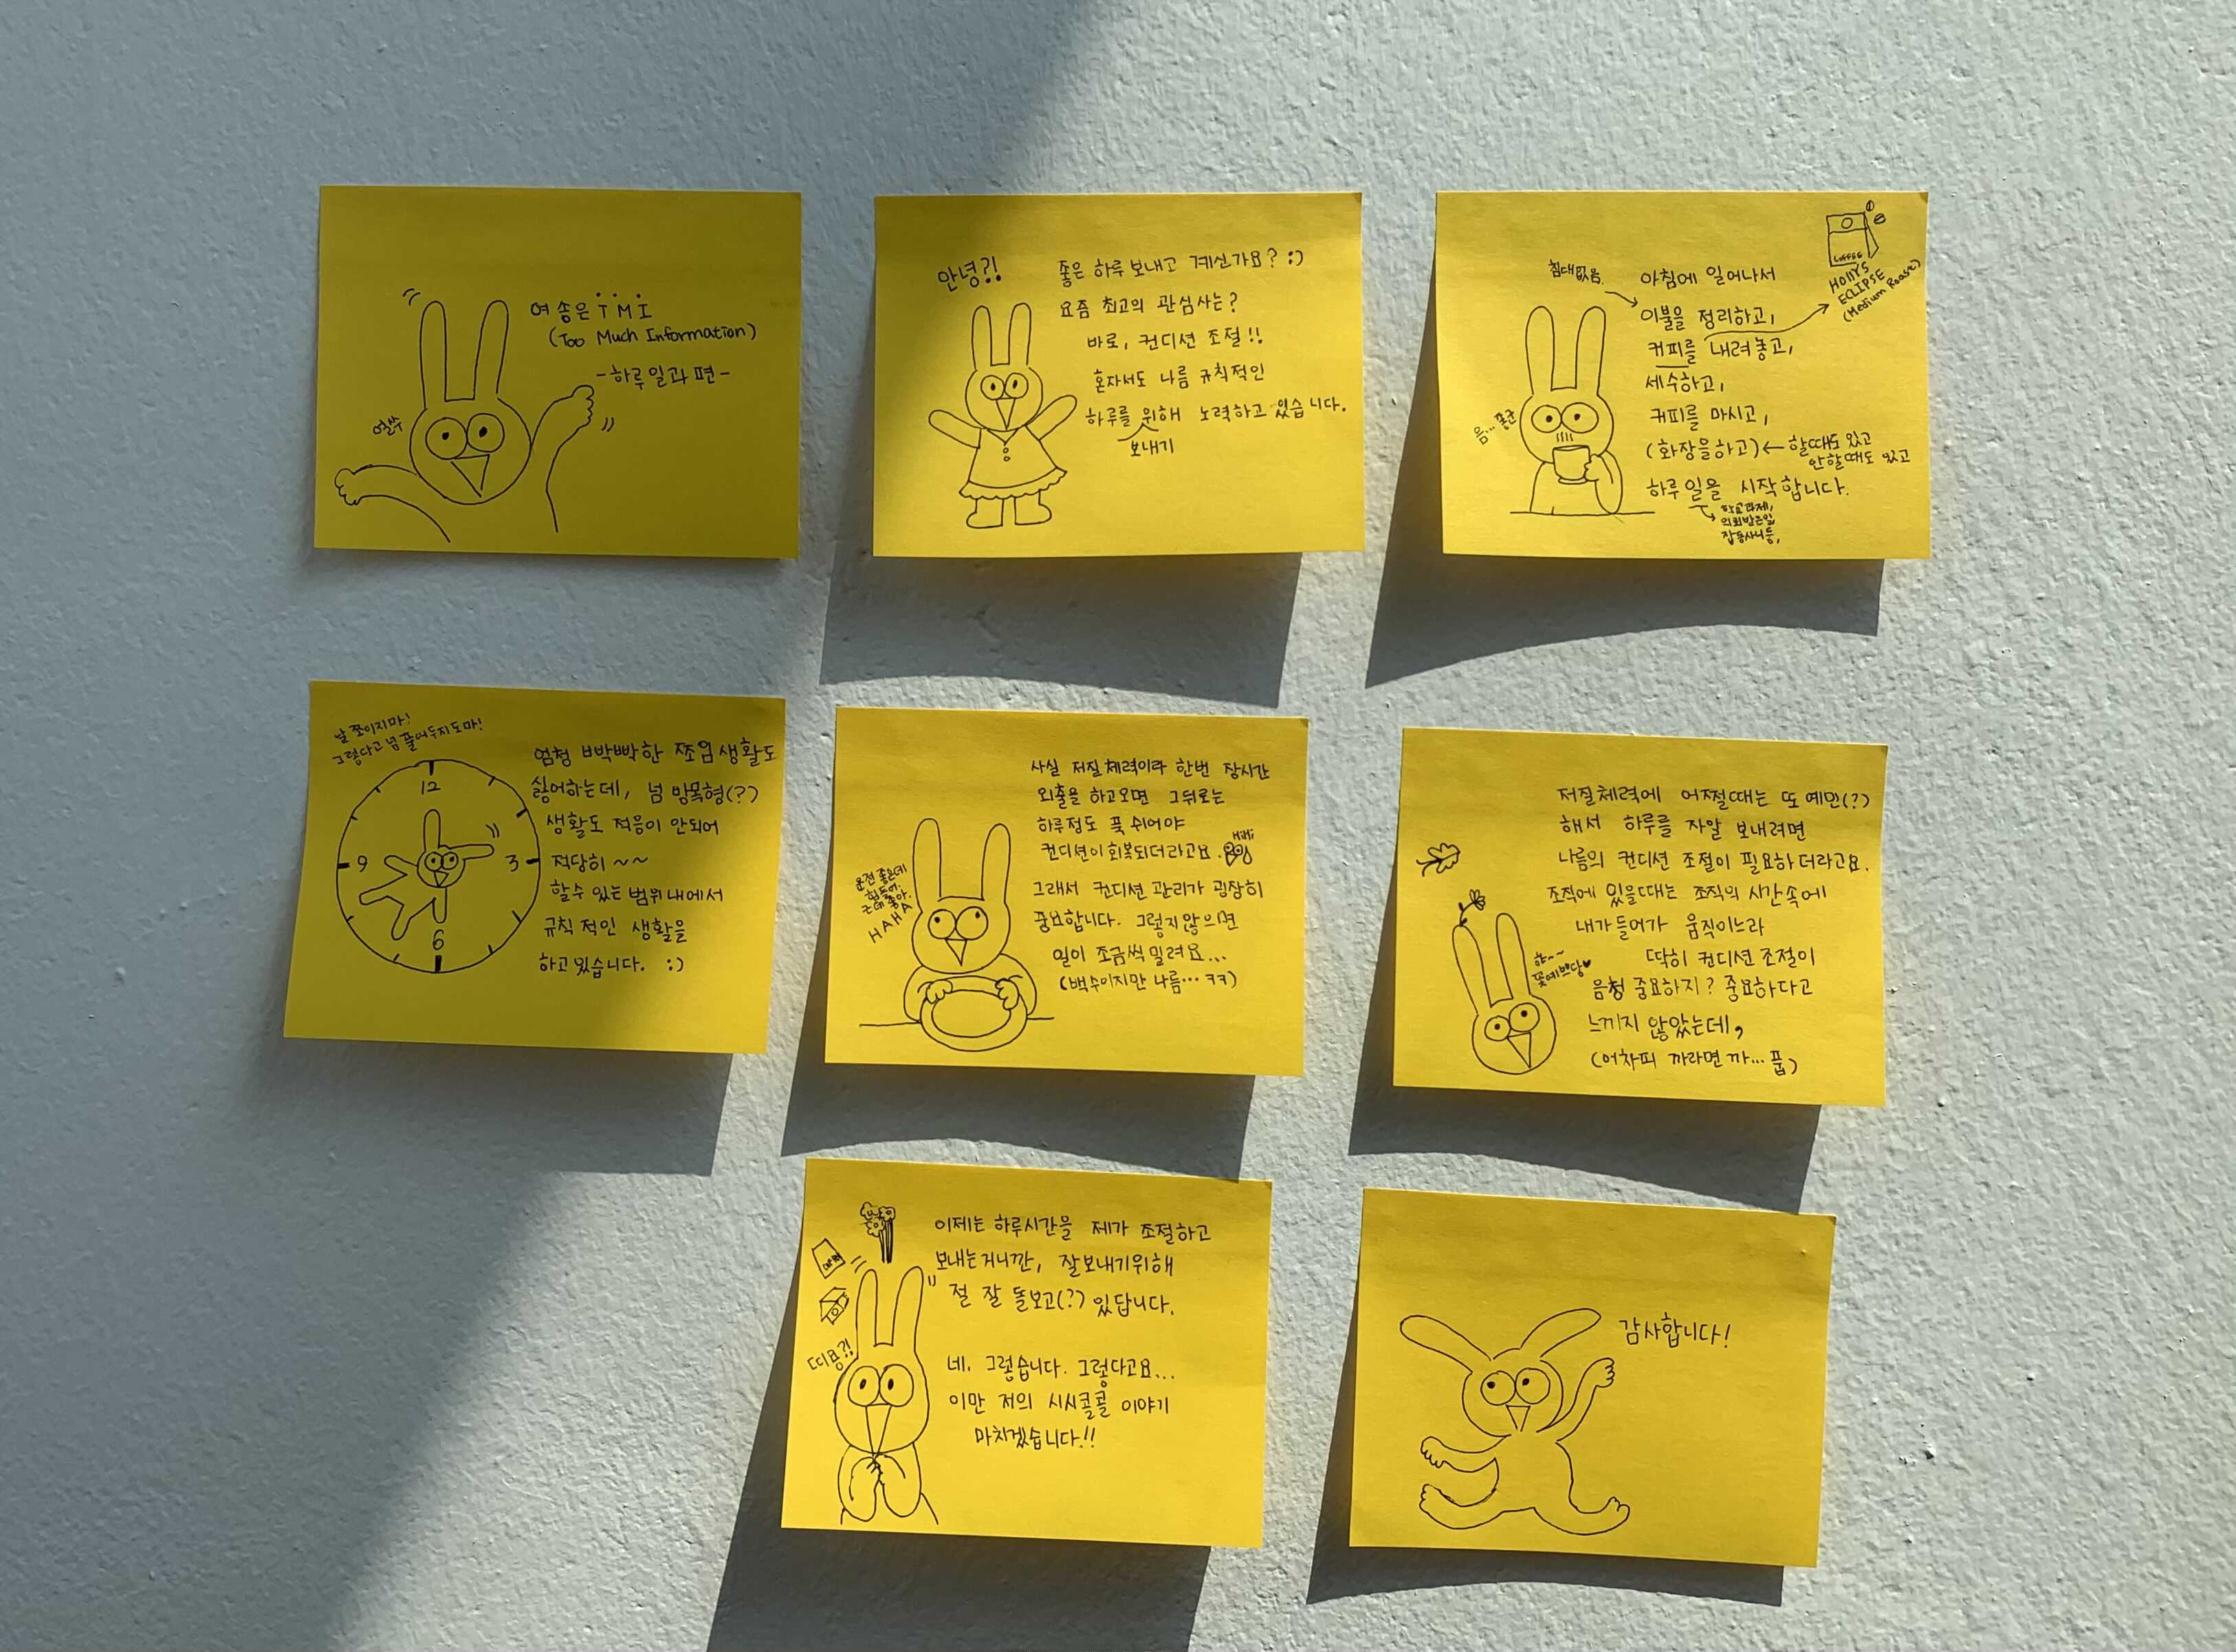 여송은 T M I
(Too Much Information)
-하루일과 편-
얼쑤
안녕?!
좋은 하루 보내고 계신가요? :)
요즘 최고의 관심사는?
바로, 컨디션 조절!!
혼자서도 나름 규칙적인
하루를 위해 노력하고 있습니다.
보내기
침대없음.
아침에 일어나서
이불을 정리하고,
커피를 내려놓고,
세수하고,
커피를 마시고,
(화장을하고) ← 할때도 있고
안할때도 있고
하루 일을 시작합니다.
학교과제,
의뢰받은일
잡동사니등,
COFFEE
HOllYS
ECLIPSE
(Medium Roast)
음... 좋군
날 쪼이지마!
그렇다고 넘 풀어두지도마!
12
3
6
9
엄청 빡빡한 쪼임생활도
싫어하는데, 넘 방목형(?)
생활도 적응이 안되어
적당히 ~~
할수 있는 범위내에서
규칙적인 생활을
하고있습니다. :)
사실 저질체력이라 한번 장시간
외출을 하고오면 그뒤로는
하루정도 푹 쉬어야
컨디션이 회복되더라고요.
HiHi
그래서 컨디션 관리가 굉장히
중요합니다. 그렇지않으면
일이 조금씩 밀려요...
(백수이지만 나름... ㅋㅋ)
운전 좋은데
힘들어.
근데 좋아.
HAHA
저질체력에 어쩔때는 또 예민(?)
해서 하루를 자알 보내려면
나름의 컨디션 조절이 필요하더라고요.
조직에 있을때는 조직의 시간속에
내가들어가 움직이느라
딱히 컨디션 조절이
음청 중요하지? 중요하다고
느끼지 않았는데,
(어차피 까라면 까... 풉)
햐~~
꽃예쁘당♥
이제는 하루시간을 제가 조절하고
보내는거니깐, 잘보내기위해
절 잘 돌보고(?) 있답니다.
띠용?!
네. 그렇습니다. 그렇다고요...
이만 저의 시시콜콜 이야기
마치겠습니다.!!
감사합니다!